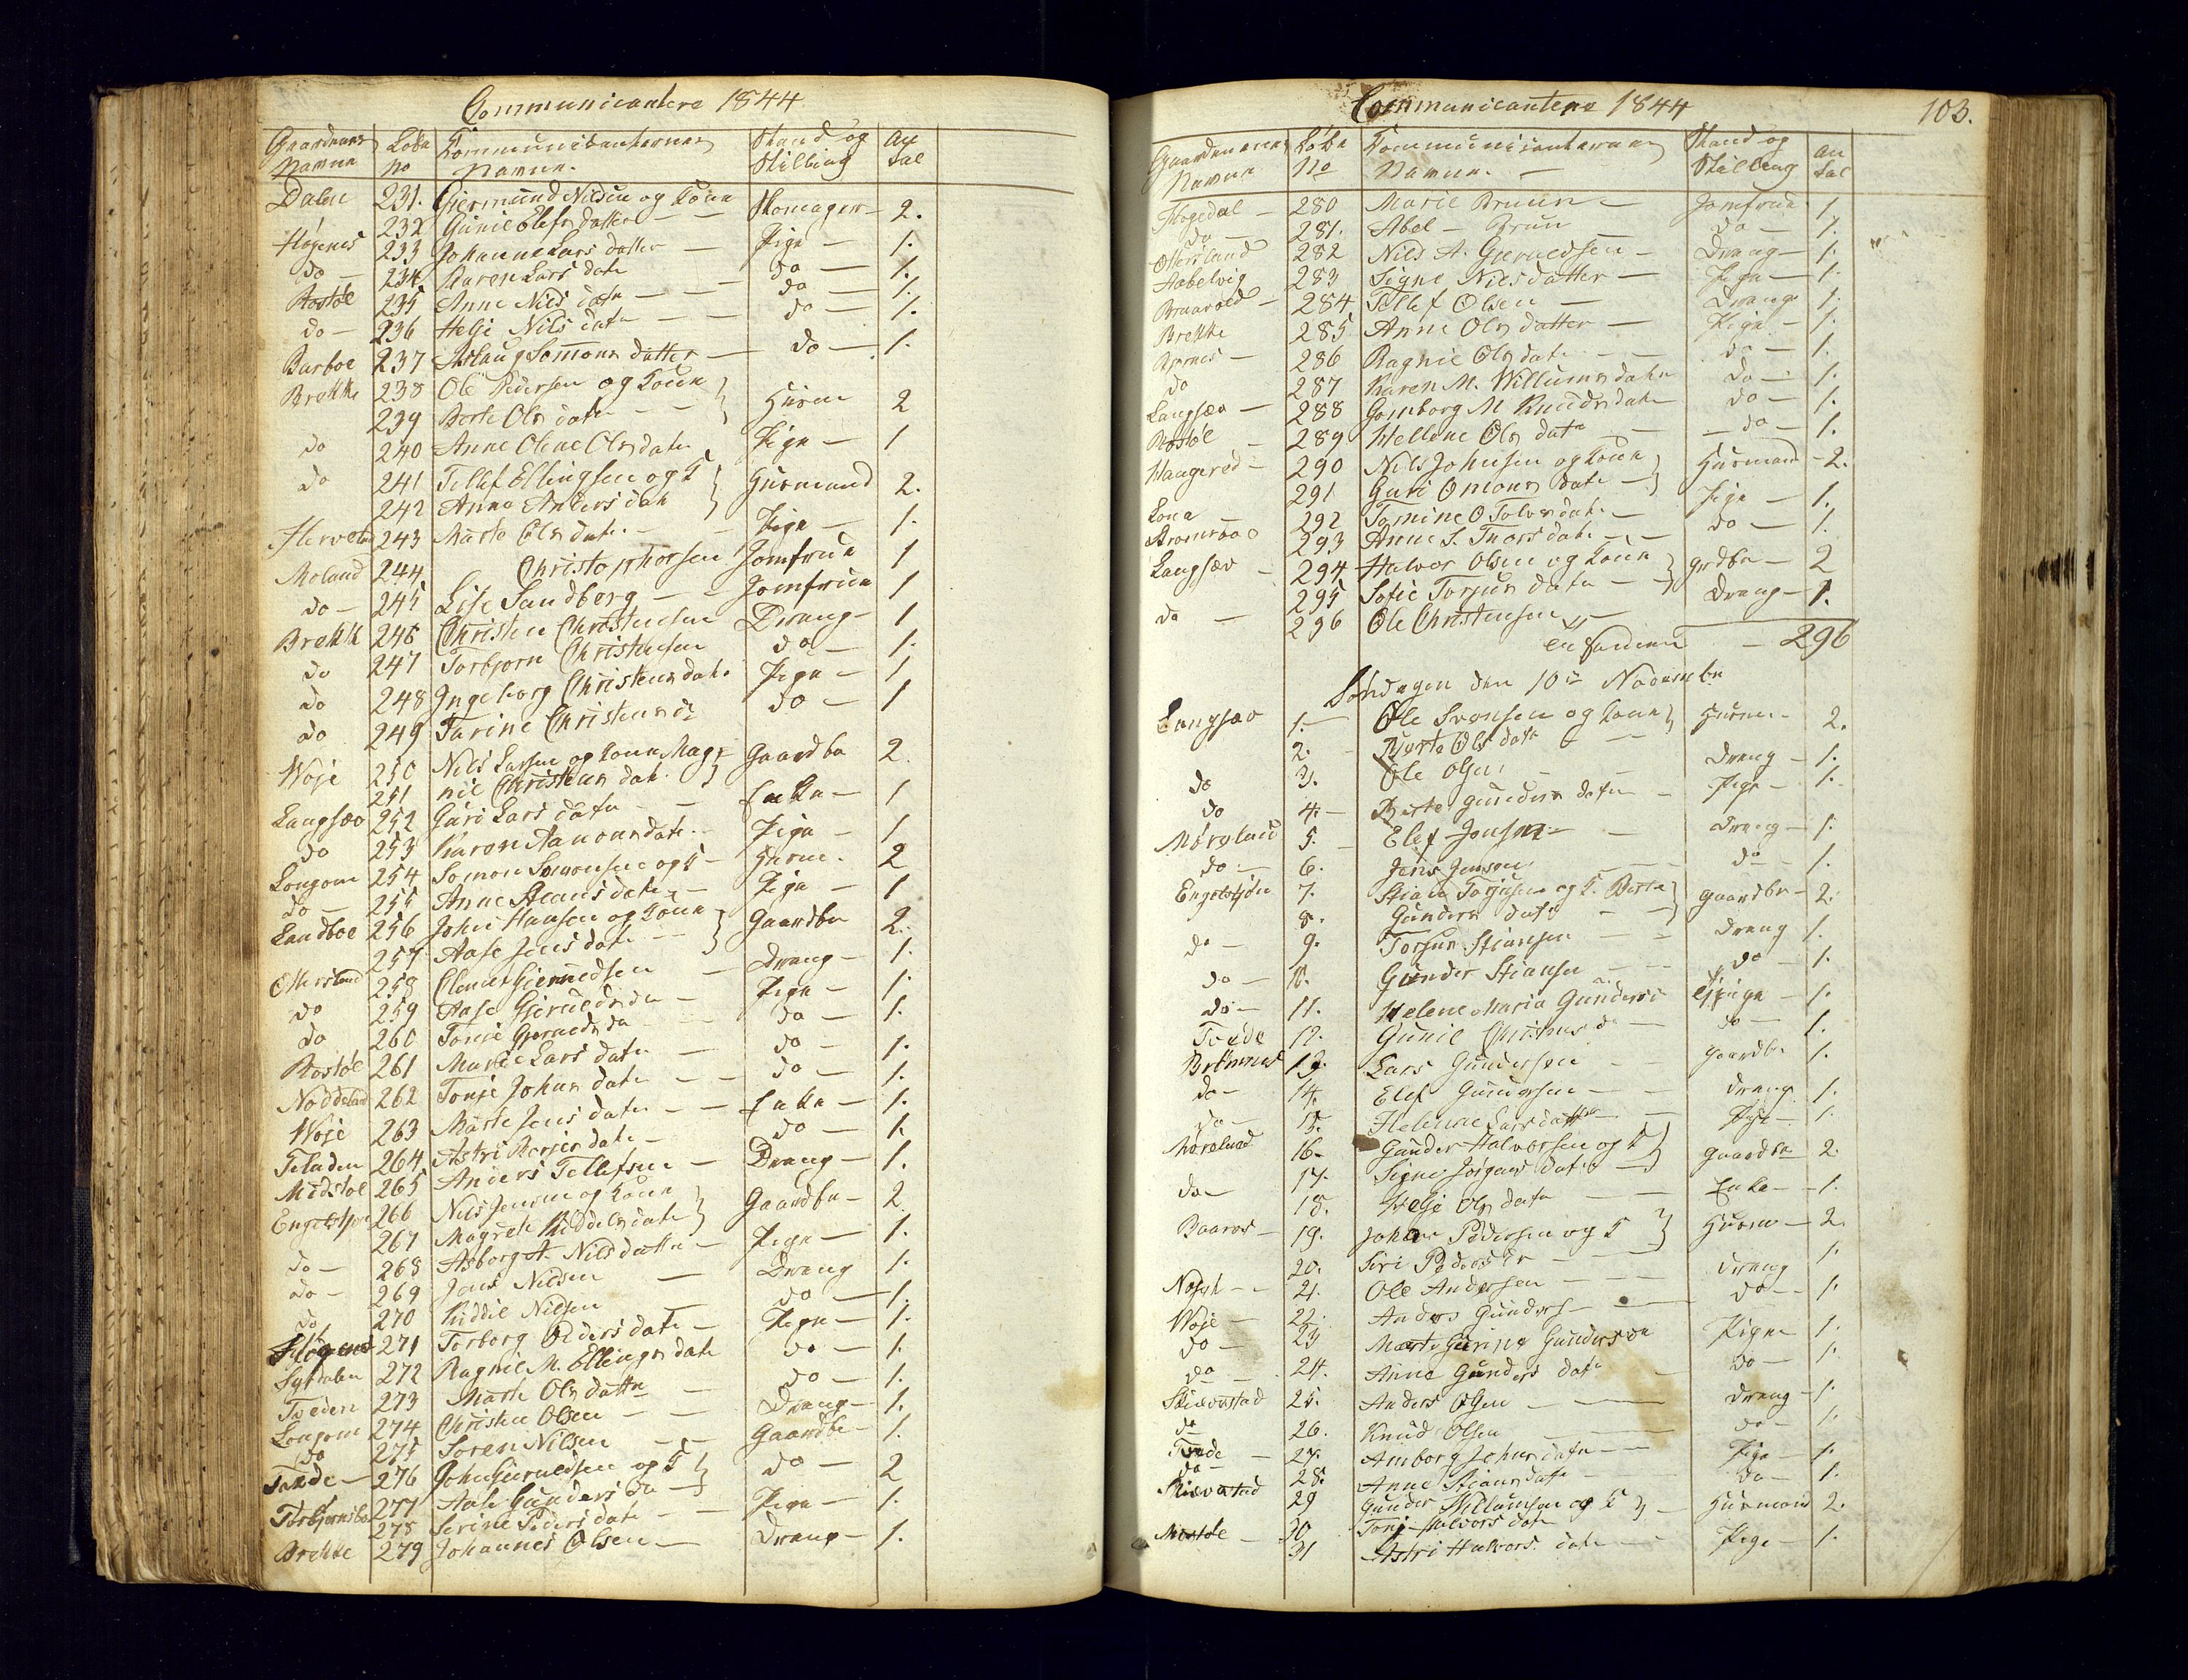 Communicantere 1844
Gaardenes Løbe Kommunikanternes Stand og An
Navne No Navne. Stilling tal
Dalen 231. Giermund Nilsen og Kone Skomager 2.
232 Gunil Elefs datter
Høgenes 233 Johanne Lars datter Pige 1.
do 234 Karen Lars datr do 1.
Rostøl 235 Anne Nils datr do 1.
do 236 Helje Nils datr do 1.
Barboe 237 Aslaug Somons datter do 1.
Brekke 238 Ole Pedersen og Kone
239 Berte Ols datr Husm 2
do 240 Anne Olene Ols datr Pige 1
do 241 Tellef Ellingsen og K Husmand 2.
242 Anne Anders datr
243 Marte Ols datr Pige 1.
Moland 244 Christophersen Jomfrue 1
do 245 Lise Sandberg Jomfrue 1
Brekk 246 Christen Christensen Dreng 1
do 247 Torbjorn Christensen do 1.
do 248 Ingeborg Christens datr Pige 1
do 249 Tarine Christens d do 1
Woje 250 Nils Larsen og Kone Mag Gaardbr 2.
251 nil Christens datr
Langsæv 252 Guri Lars datr Enke 1
do 253 Karen Aanons datr Pige 1
Longom 254 Somon Somonsen og K Husm. 2
do 255 Anne Steans datr Pige 1
Sandboe 256 John Hansen og Kone Gaardbr 2.
257 Aase Jens datr
Ottersland 258 Olener Gieruldsen Dreng 1.
do 259 Aase Gierulds dr Pige 1.
do 260 Tonje Gierulds da do 1.
Rostøl 261 Marie Lars datr do 1.
Noddeland 262 Tonje Johns datr do 1.
Woje 263 Marte Jens datr Enke 1.
264 Astri datr do 1.
Midstøl 265 Anders Tellefsen Dreng 1.
Engelskjøn 266 Nils Jensen og Kone Gaardbr 2
267 Magrete Kiddels datr
do 268 Asborg A. Nils datter Pige 1.
do 269 Jens Nilsen Dreng 1.
do 270 Kiddil Nilsen do 1.
271 Torborg Peders datr Pige 1.
272 Ragnil M. Ellings datr do 1.
Tveden 273 Marte Ols datter do 1.
Longom 274 Christen Olsen Dreng 1.
do 275 Soren Nilsen Gaardbr 1.
Tvede 276 John Gieruldsen og K do 2
277 Aase Gunders da
Torbjørnsbo 278 Serine Peders datr Pige 1.
Brekke 279 Johannes Olsen Dreng 1.
Communicantere 1844 103.
Gaardenenes Løbe Communicanternes Stand og An
Navne No Navne. Stilling tal
280 Marie Bruun Jomfrue 1.
do 281. Abel Brun do 1.
Ottersland 282 Nils A. Gieruldsen Dreng 1.
Aabelvig 283 Signe Nils datter Pige 1.
284 Tellef Olsen Dreng 1.
Brekke 285 Anne Ols datter Pige 1.
286 Ragnil Ols datr do 1.
do 287 Karen M. Willums datr do 1.
Langsæv 288 Gomborg M Knuds datr do 1.
Rostøl 289 Hellene Ols datr do 1.
290 Nils Johnsen og Kone Husmand 2.
291 Guri Omons datr
292 Tomine O Tolvs datr Pige 1.
293 Anne S. Thors datr do 1.
Langsæv 294 Halvor Olsen og Kone grdbr 2
295 Sofie Torjus datr
do 296 Ole Christensen Dreng 1.
296
Søndagen den 10de November
Langsæv 1. Ole Svensen og Kone Husm. 2.
2. Berte Ols datr
do 3. Ole Olsen Dreng 1.
do 4. Berte Gunders datr Pige 1.
Mørland 5. Elef Jensen Dreng 1.
do 6. Jens Jensen do 1.
Engelskjøn 7. Stian Torjusen og K. Berte Gaardbr 2.
8. Gunders datr
do 9. Torjus Stiansen Dreng 1.
do 10. Gunder Stiansen do 1.
do 11. Helene Maria Gunders Pige 1.
Tvede 12. Gunil Christens d do 1.
13. Lars Gundersen Gaardbr 1.
do 14. Elef Gundersen Dreng 1.
do 15. Helene Lars datter Pige 1.
16. Gunder Halvorsen og K Gaardbr 2.
17. Signe Jørgens datr
do 18. Helje Ols datr Enke 1.
19. Johan Pedersen og K Husm 2.
20. Siri Peders dr
21. Ole Andersen Dreng 1.
Woje 22. Anders Gunders do 1.
do 23 Marte Gurine Gunders da Pige 1.
do 24. Anne Gunders datr do 1.
25. Anders Olsen Dreng 1.
do 26. Knud Olsen do 1.
Tvede 27. Amborg Johns datr Pige 1.
do 28. Anne Stians datr do 1.
29 Gunder Willumsen og K Husmand 2.
30 Tonje Halvors datr
31 Astri Halvors datr Pige 1.